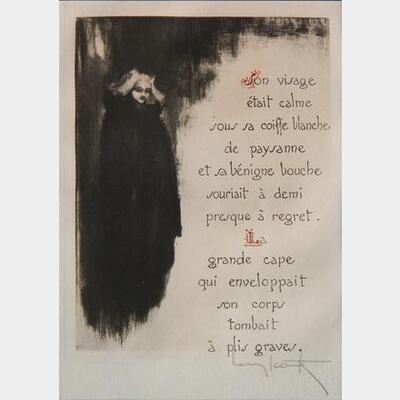 Son visage
était calme
sous sa coiffe blanche
de paysanne
et sa bénigne bouche
souriait à demi
presque à regret.
La
grande cape
qui enveloppait
son corps
tombait
à plis graves.